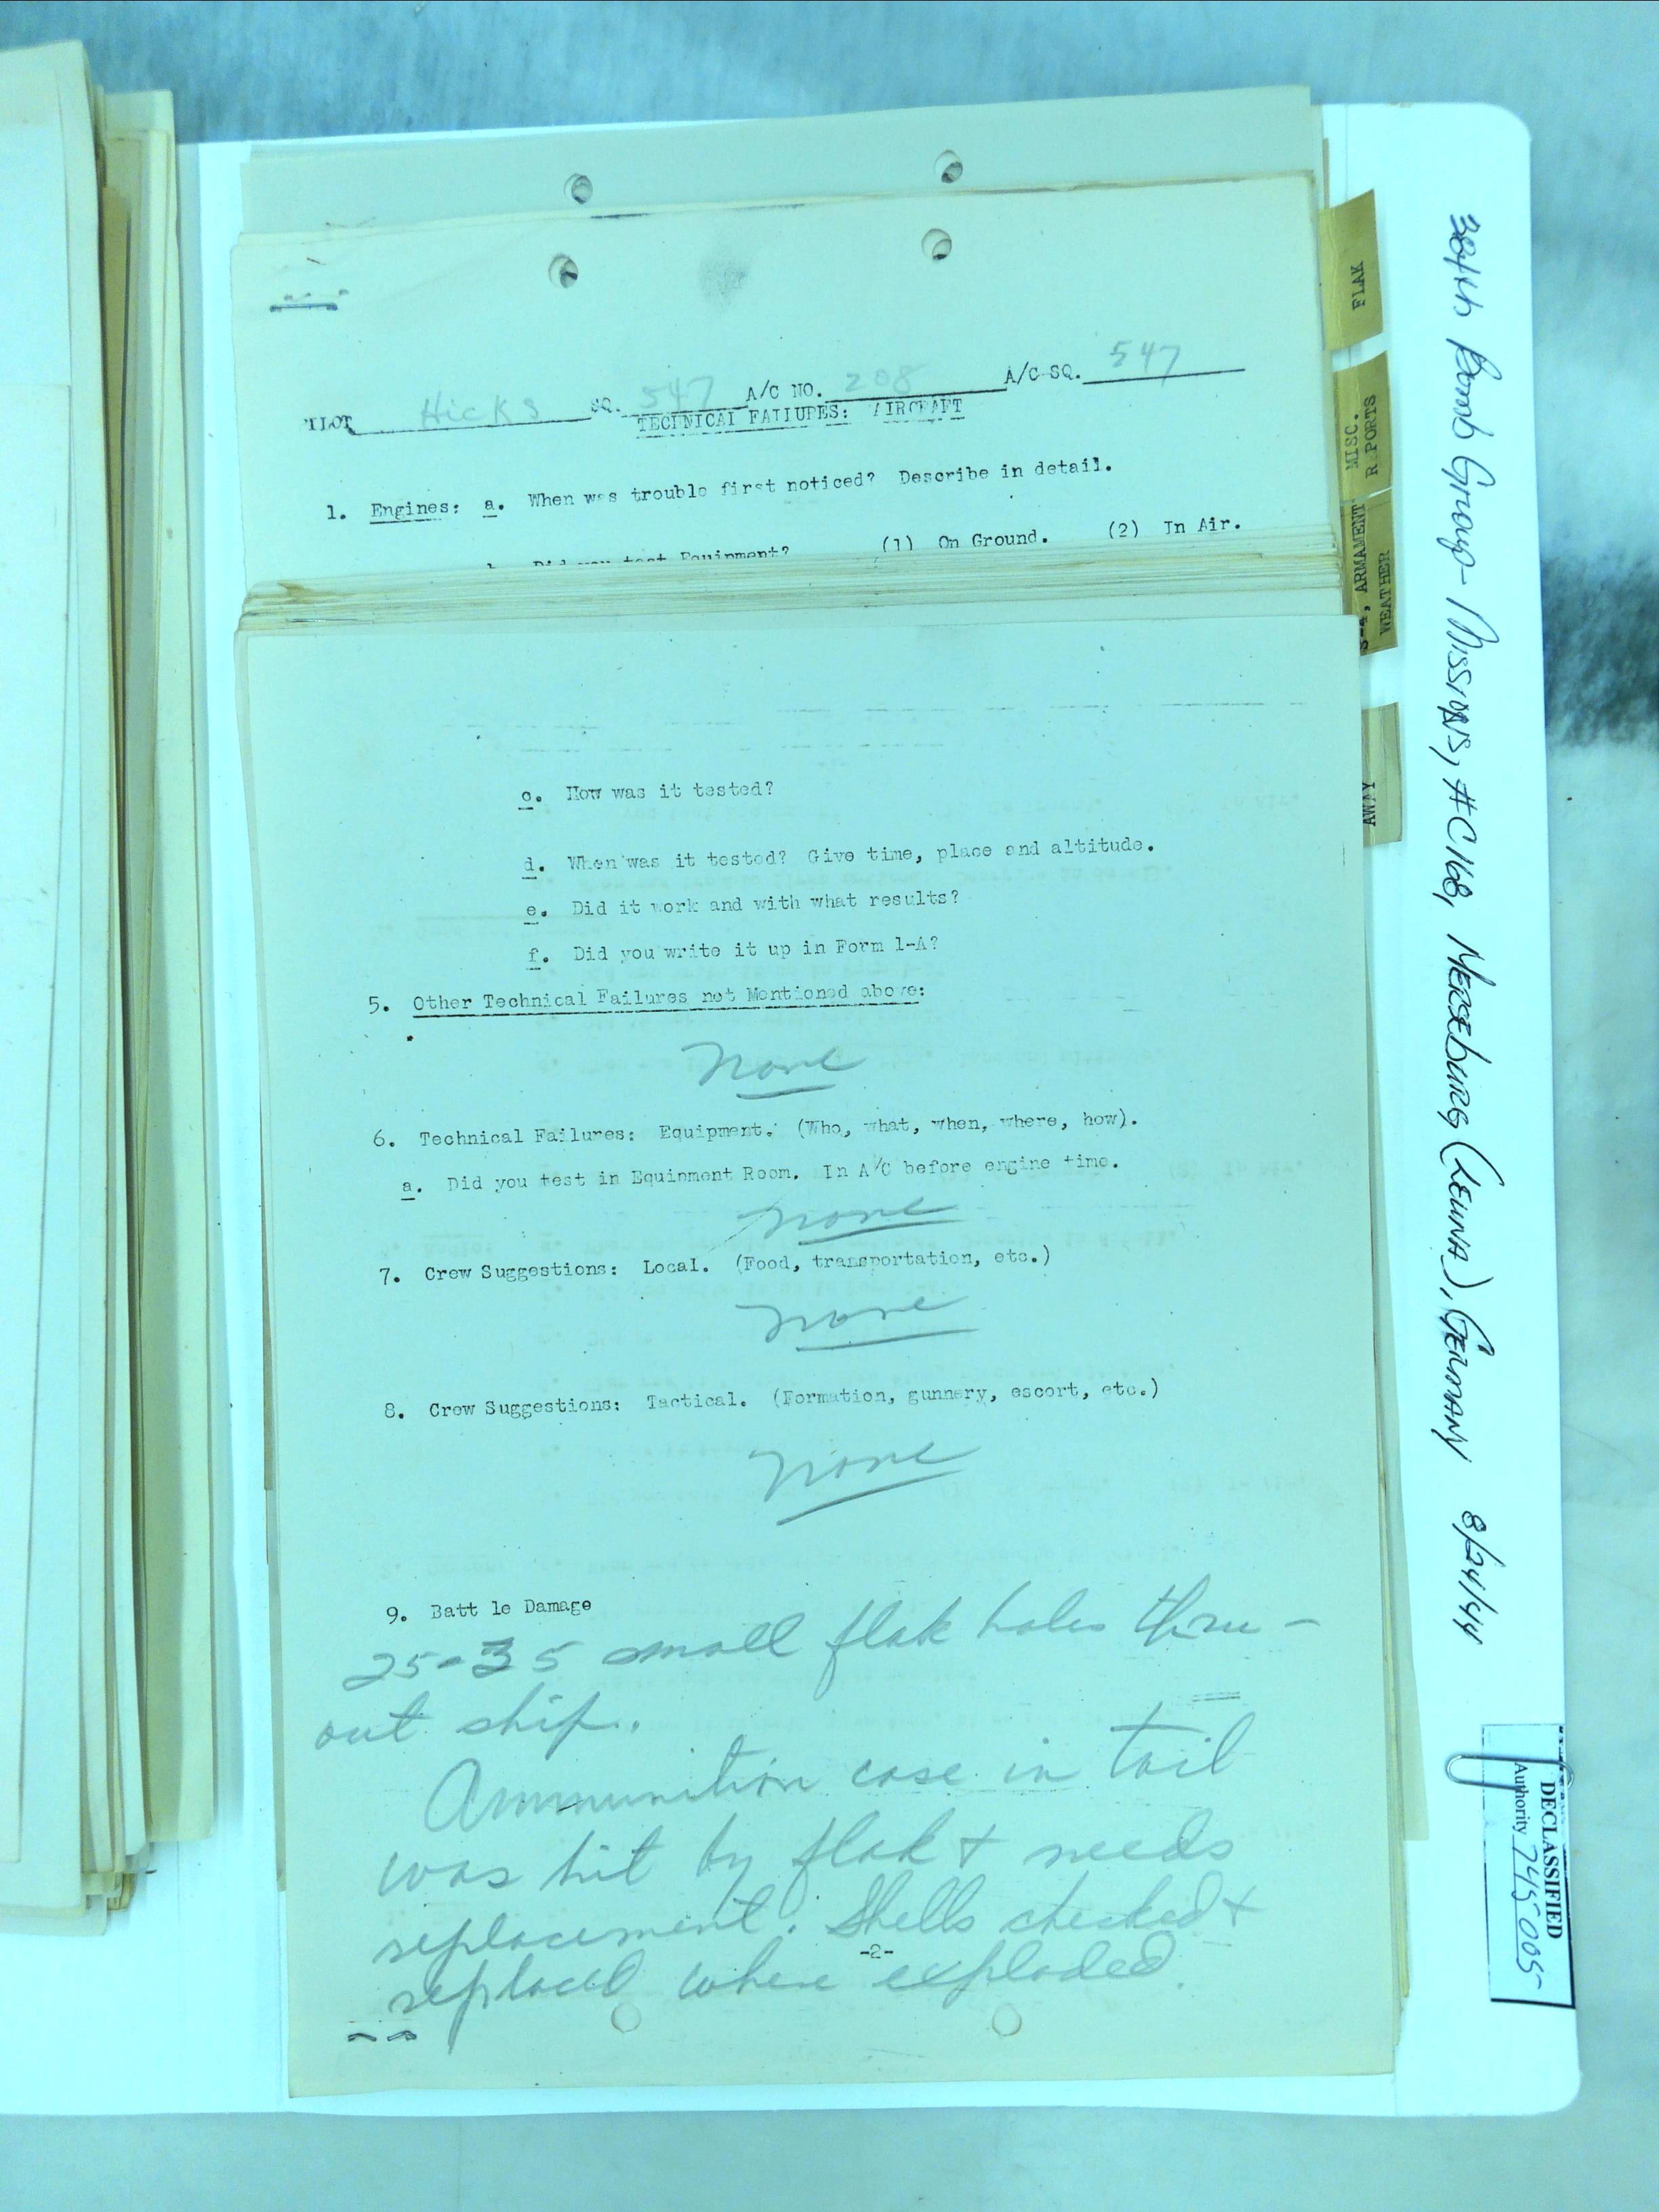 PILOT Hicks SQ. 547 A/C NO. 208 A/C SQ. 547
TECHNICAL FAILURES: AIRCRAFT
1. Engines: a. When was trouble first noticed? Describe in detail.
Did you test Equipment? (1) On Ground. (2) In Air.
c. How was it tested?
d. When was it tested? Give time, place and altitude.
e. Did it work and with what results?
f. Did you write it up in Form 1-A?
5. Other Technical Failures not Mentioned above:
None
6. Technical Failures: Equipment. (Who, what, when, where, how).
a. Did you test in Equipment Room. In A/C before engine time.
None
7. Crew Suggestions: Local. (Food, transportation, etc.)
None
8. Crew Suggestions: Tactical. (Formation, gunnery, escort, etc.)
None
9. Batt le Damage
25-35 small flak holes thru-
out ship.
Ammunition case in tail
was hit by flak + needs
replacement. Shells checked +
replaced where exploded.
-2-
FLAK
MISC.
R PORTS
S-4, ARMAMENT
WEATHER
AWAY
384th Bomb Group - Missions, #C168, MERSEBURG (LEUNA), GERMANY 8/24/44
DECLASSIFIED
Authority 745005